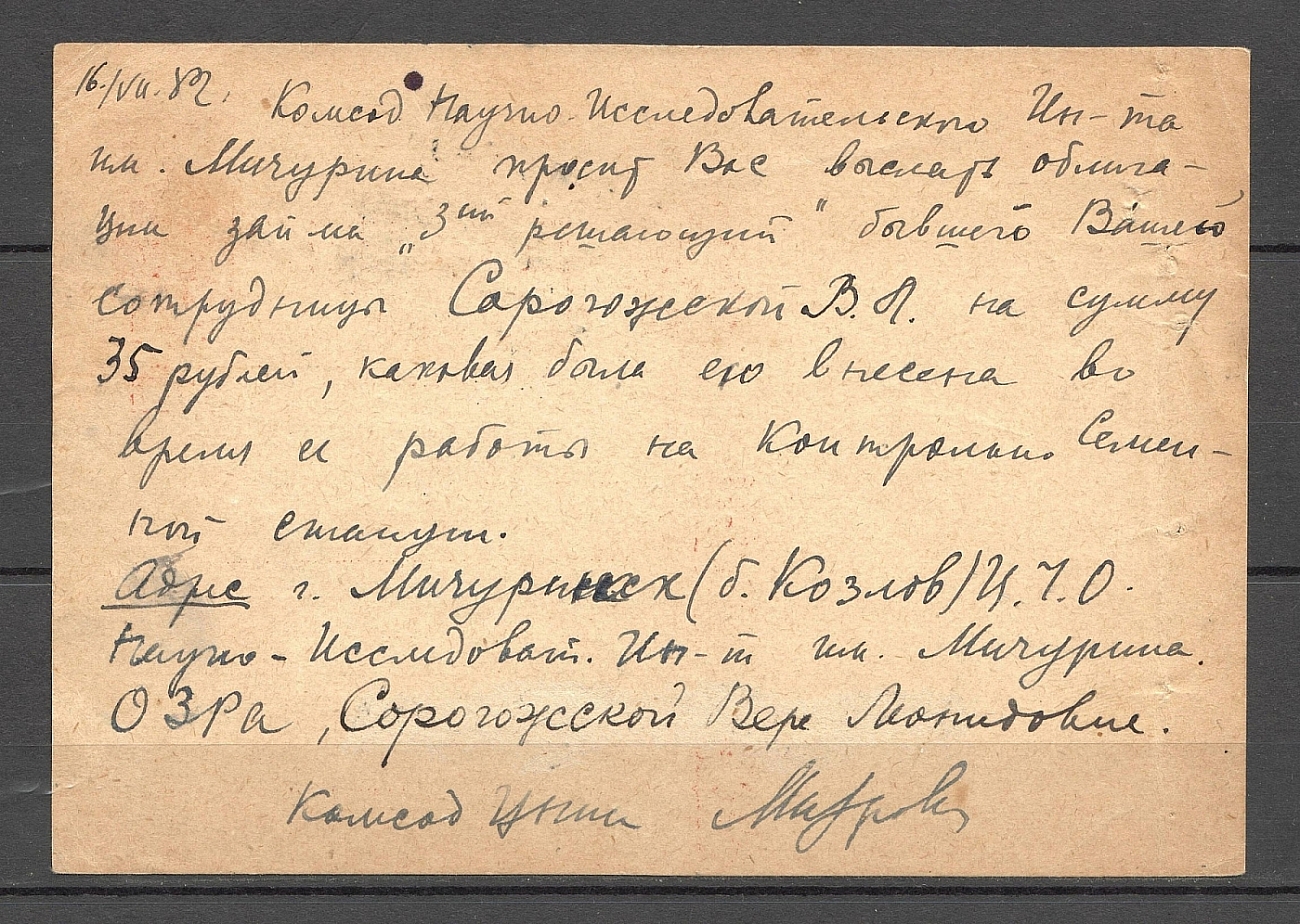 16./VII.32.
Комсод Научно-Исследовательского Ин-та
им. Мичурина просит Вас выслать облига-
ции займа „3ий решающий" бывшего Вашего
сотрудницы Сорогожской В.Л. на сумму
35 рублей, каковая была ею внесена во
время ее работы на Контрольно Семен-
ной станции.
Адрес г. Мичуринск (б. Козлов) Ц.Ч.О.
Научно-Исследоват. Ин-т им. Мичурина.
ОЗРа, Сорогожской Вере Леонидовне.
Комсод